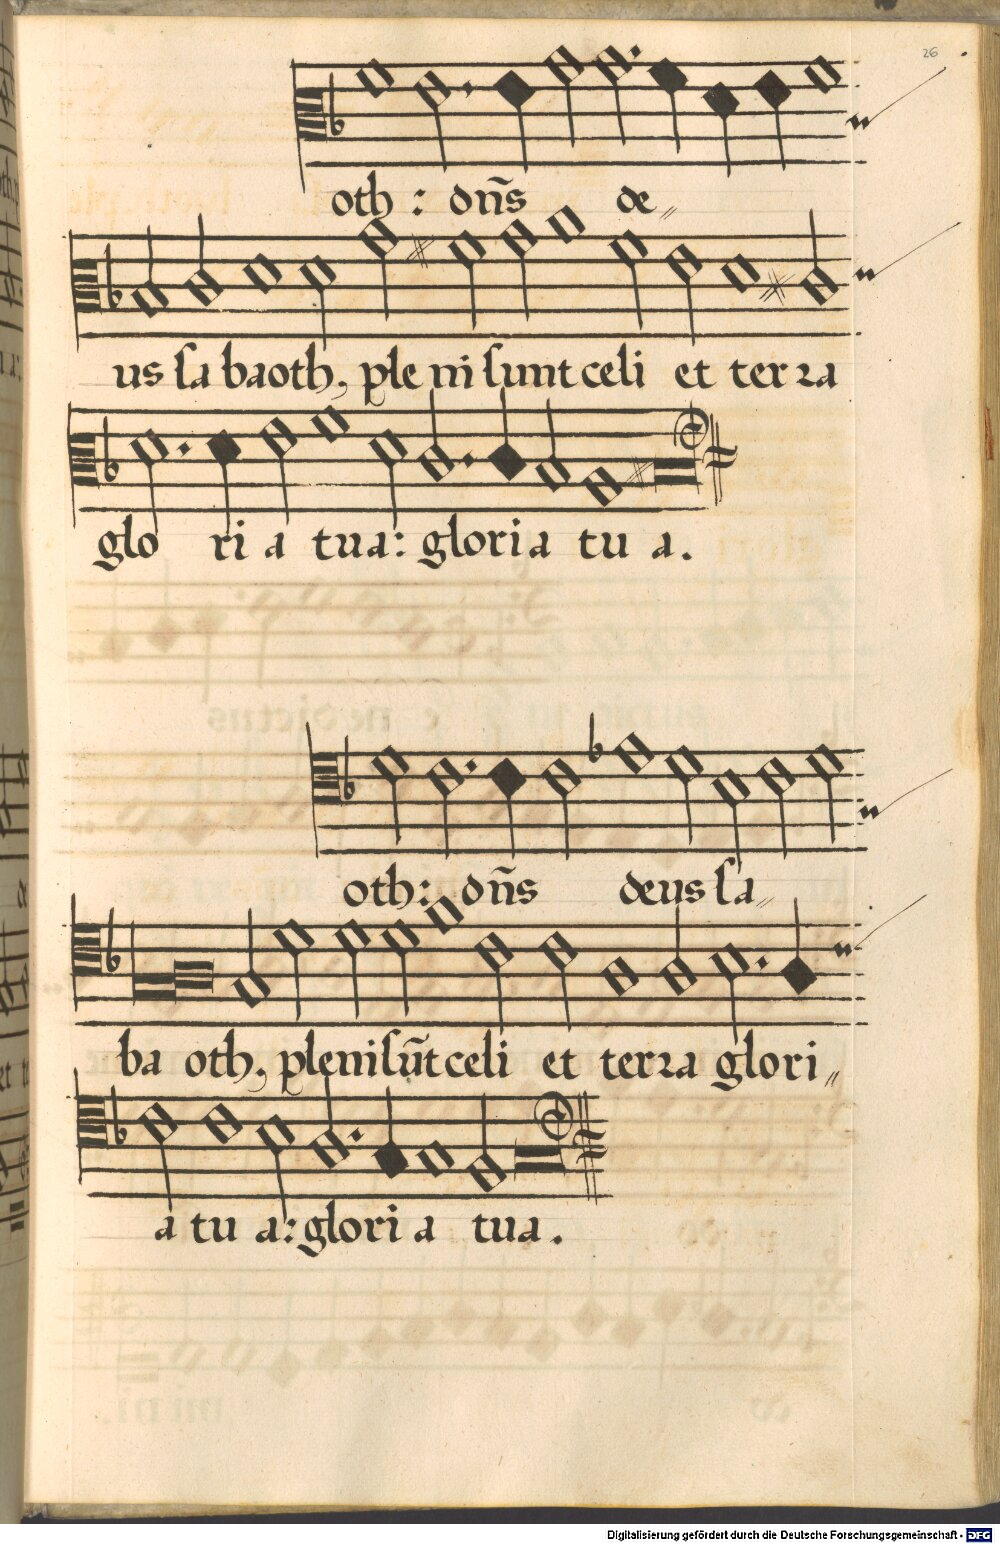 26
oth : dñs de〃
us sa baoth, ple ni sunt celi et terra
glo ri a tua: gloria tu a.
oth: dñs deus sa〃
ba oth, pleni sũt celi et terra glori〃
a tu a: glori a tua.
Digitalisierung gefördert durch die Deutsche Forschungsgemeinschaft - DFG